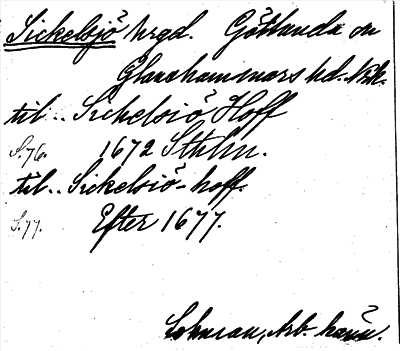 Sickelsjö hrgd. Götlunda sn
Glanshammars hd. Nrk.
til.. Sickelsiö Hoff
S.76. 1672 Sthlm.
til.. Sickelsiö-hoff.
S.77. Efter 1677.
Lohman, Arb. hand.